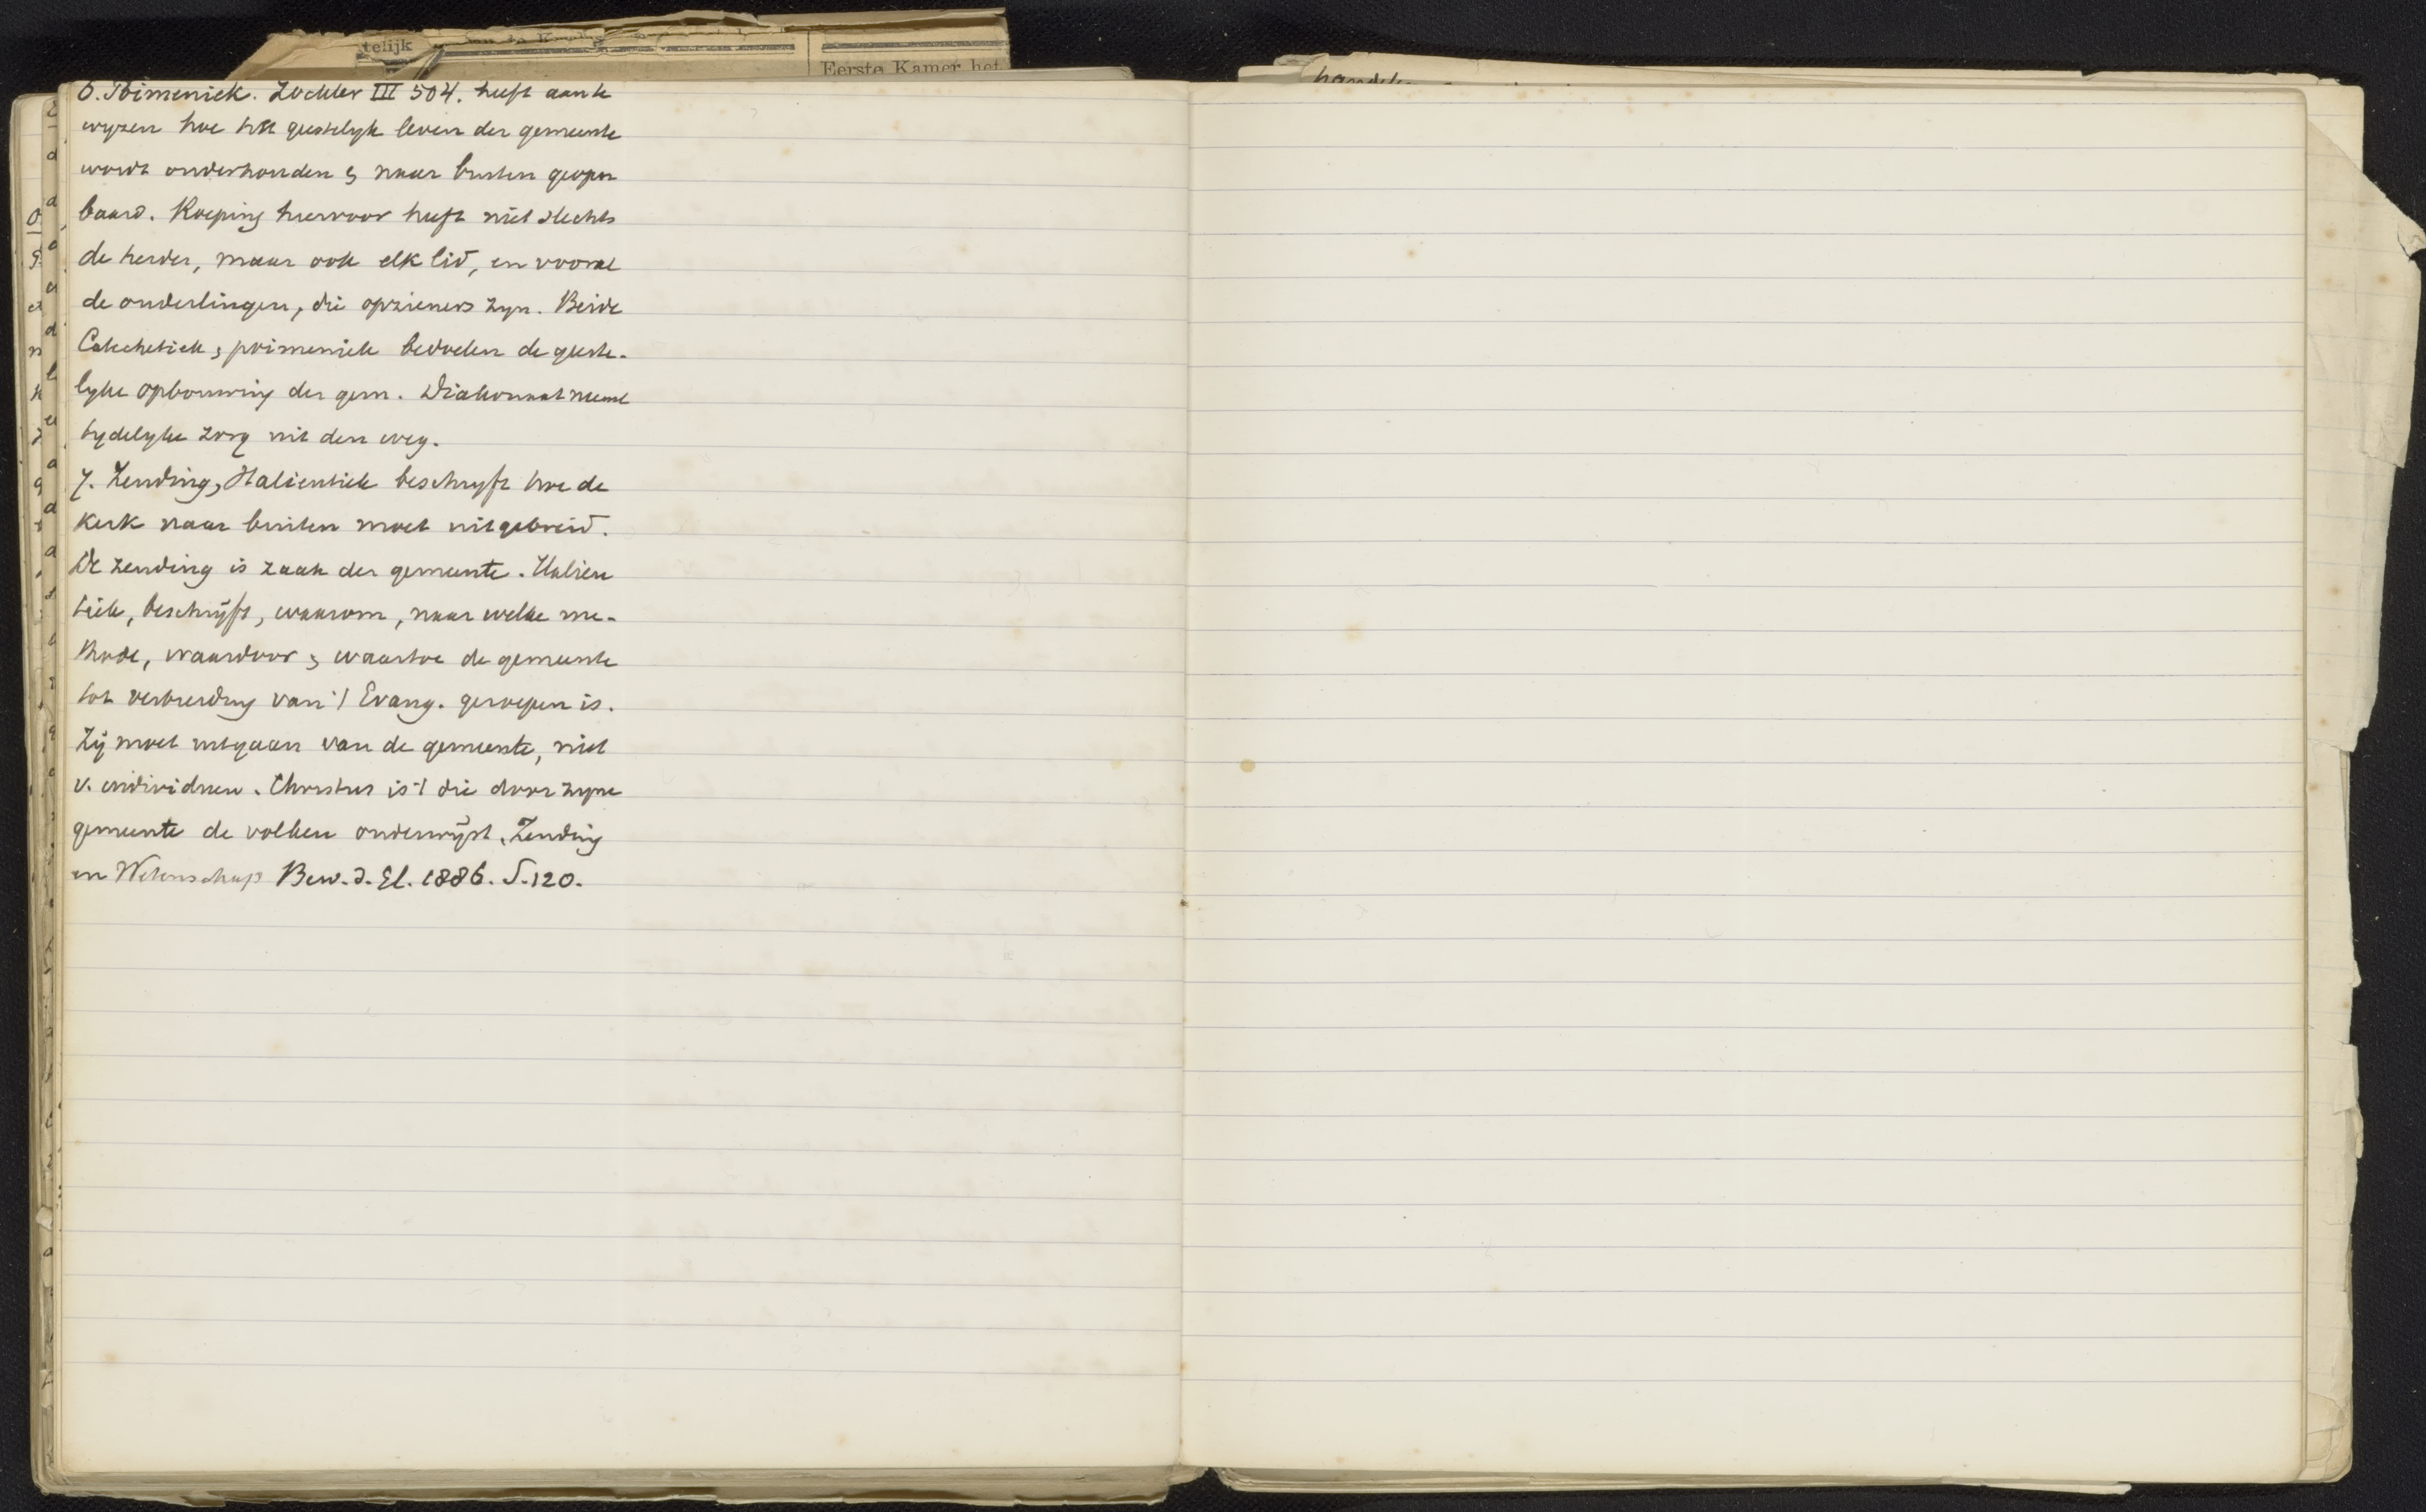 telijk
Eerste Kamer het
6. Poimeniek. Zöckler III 504. heeft aan te
wyzen hoe het geestelyk leven der gemeente
wordt onderhouden & naar buiten geopen
baard. Roeping hiervoor heeft niet slechts
de herder, maar ook elk lid, en vooral
de ouderlingen, die opzieners zyn. Beide
Catechetiek & poimeniek bedoelen de geeste-
lyke opbouwing der gem. Diakonaat neemt
tydelyke zorg uit den weg.
7. Zending, Halientiek beschryft hoe de
kerk naar buiten moet uitgebreid.
De zending is zaak der gemeente. Halien
tiek, beschrijft, waarom, naar welke me-
thode, waardoor & waartoe de gemeente
tot verbreiding van 't Evang. geroepen is.
Zij moet uitgaan van de gemeente, niet
v. individuen. Christus is 't die door zyne
gemeente de volken onderwijst. Zending
en Wetenschap Bew. d. El. 1886. S. 120.